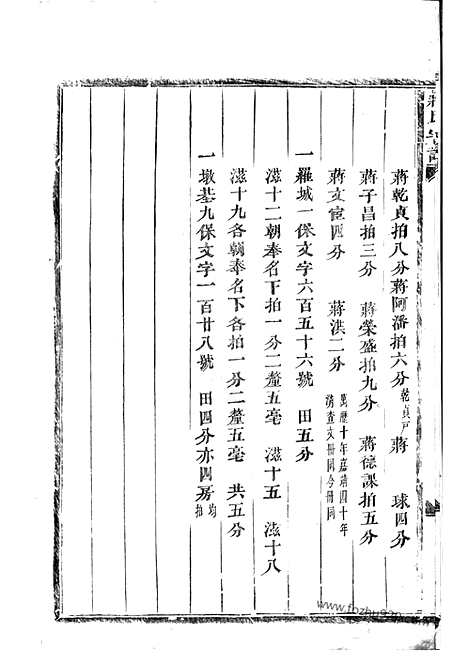 蔣氏宗譜
蔣乾貞拍八分蔣阿潘拍六分乾貞戸 蔣 球四分
蔣子昌拍三分 蔣榮盛拍九分 蔣德課拍五分
蔣文宦四分 蔣洪二分 萬歷十年嘉靖四十年
清查文冊同今冊同
一羅城一保文字六百五十六號 田五分
滋十二朝奉名下拍一分二釐五毫 滋十五 滋十八
滋十九各朝奉名下各拍一分二釐五毫 共五分
一墩基九保文字一百廿八號 田四分亦四房均拍